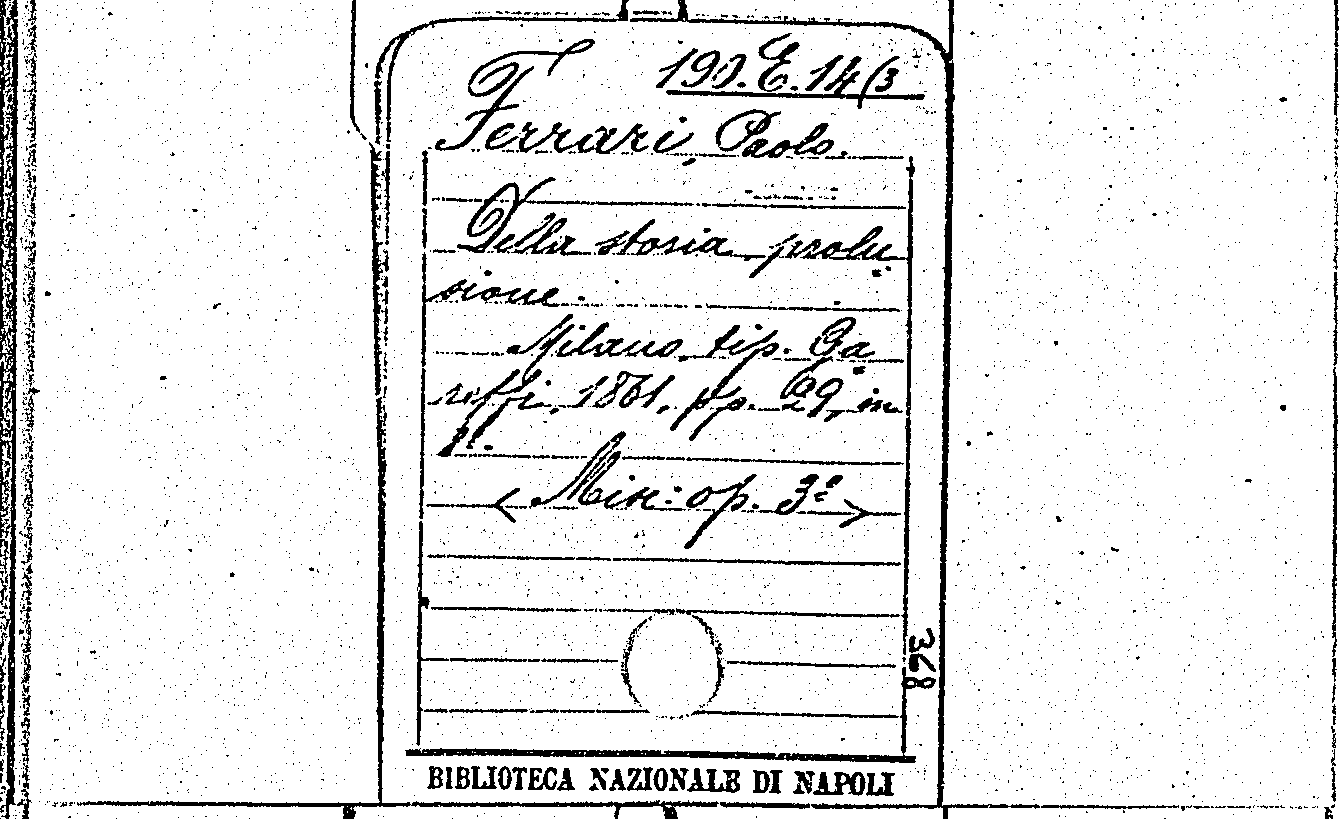 190.E.14(3
Ferrari, Paolo.
Della storia prolu
sione.
Milano, tip. Ga
reffi, 1861, pp. 29, in
8°.
< Misc: op. 3° >
368
BIBLIOTECA NAZIONALE DI NAPOLI